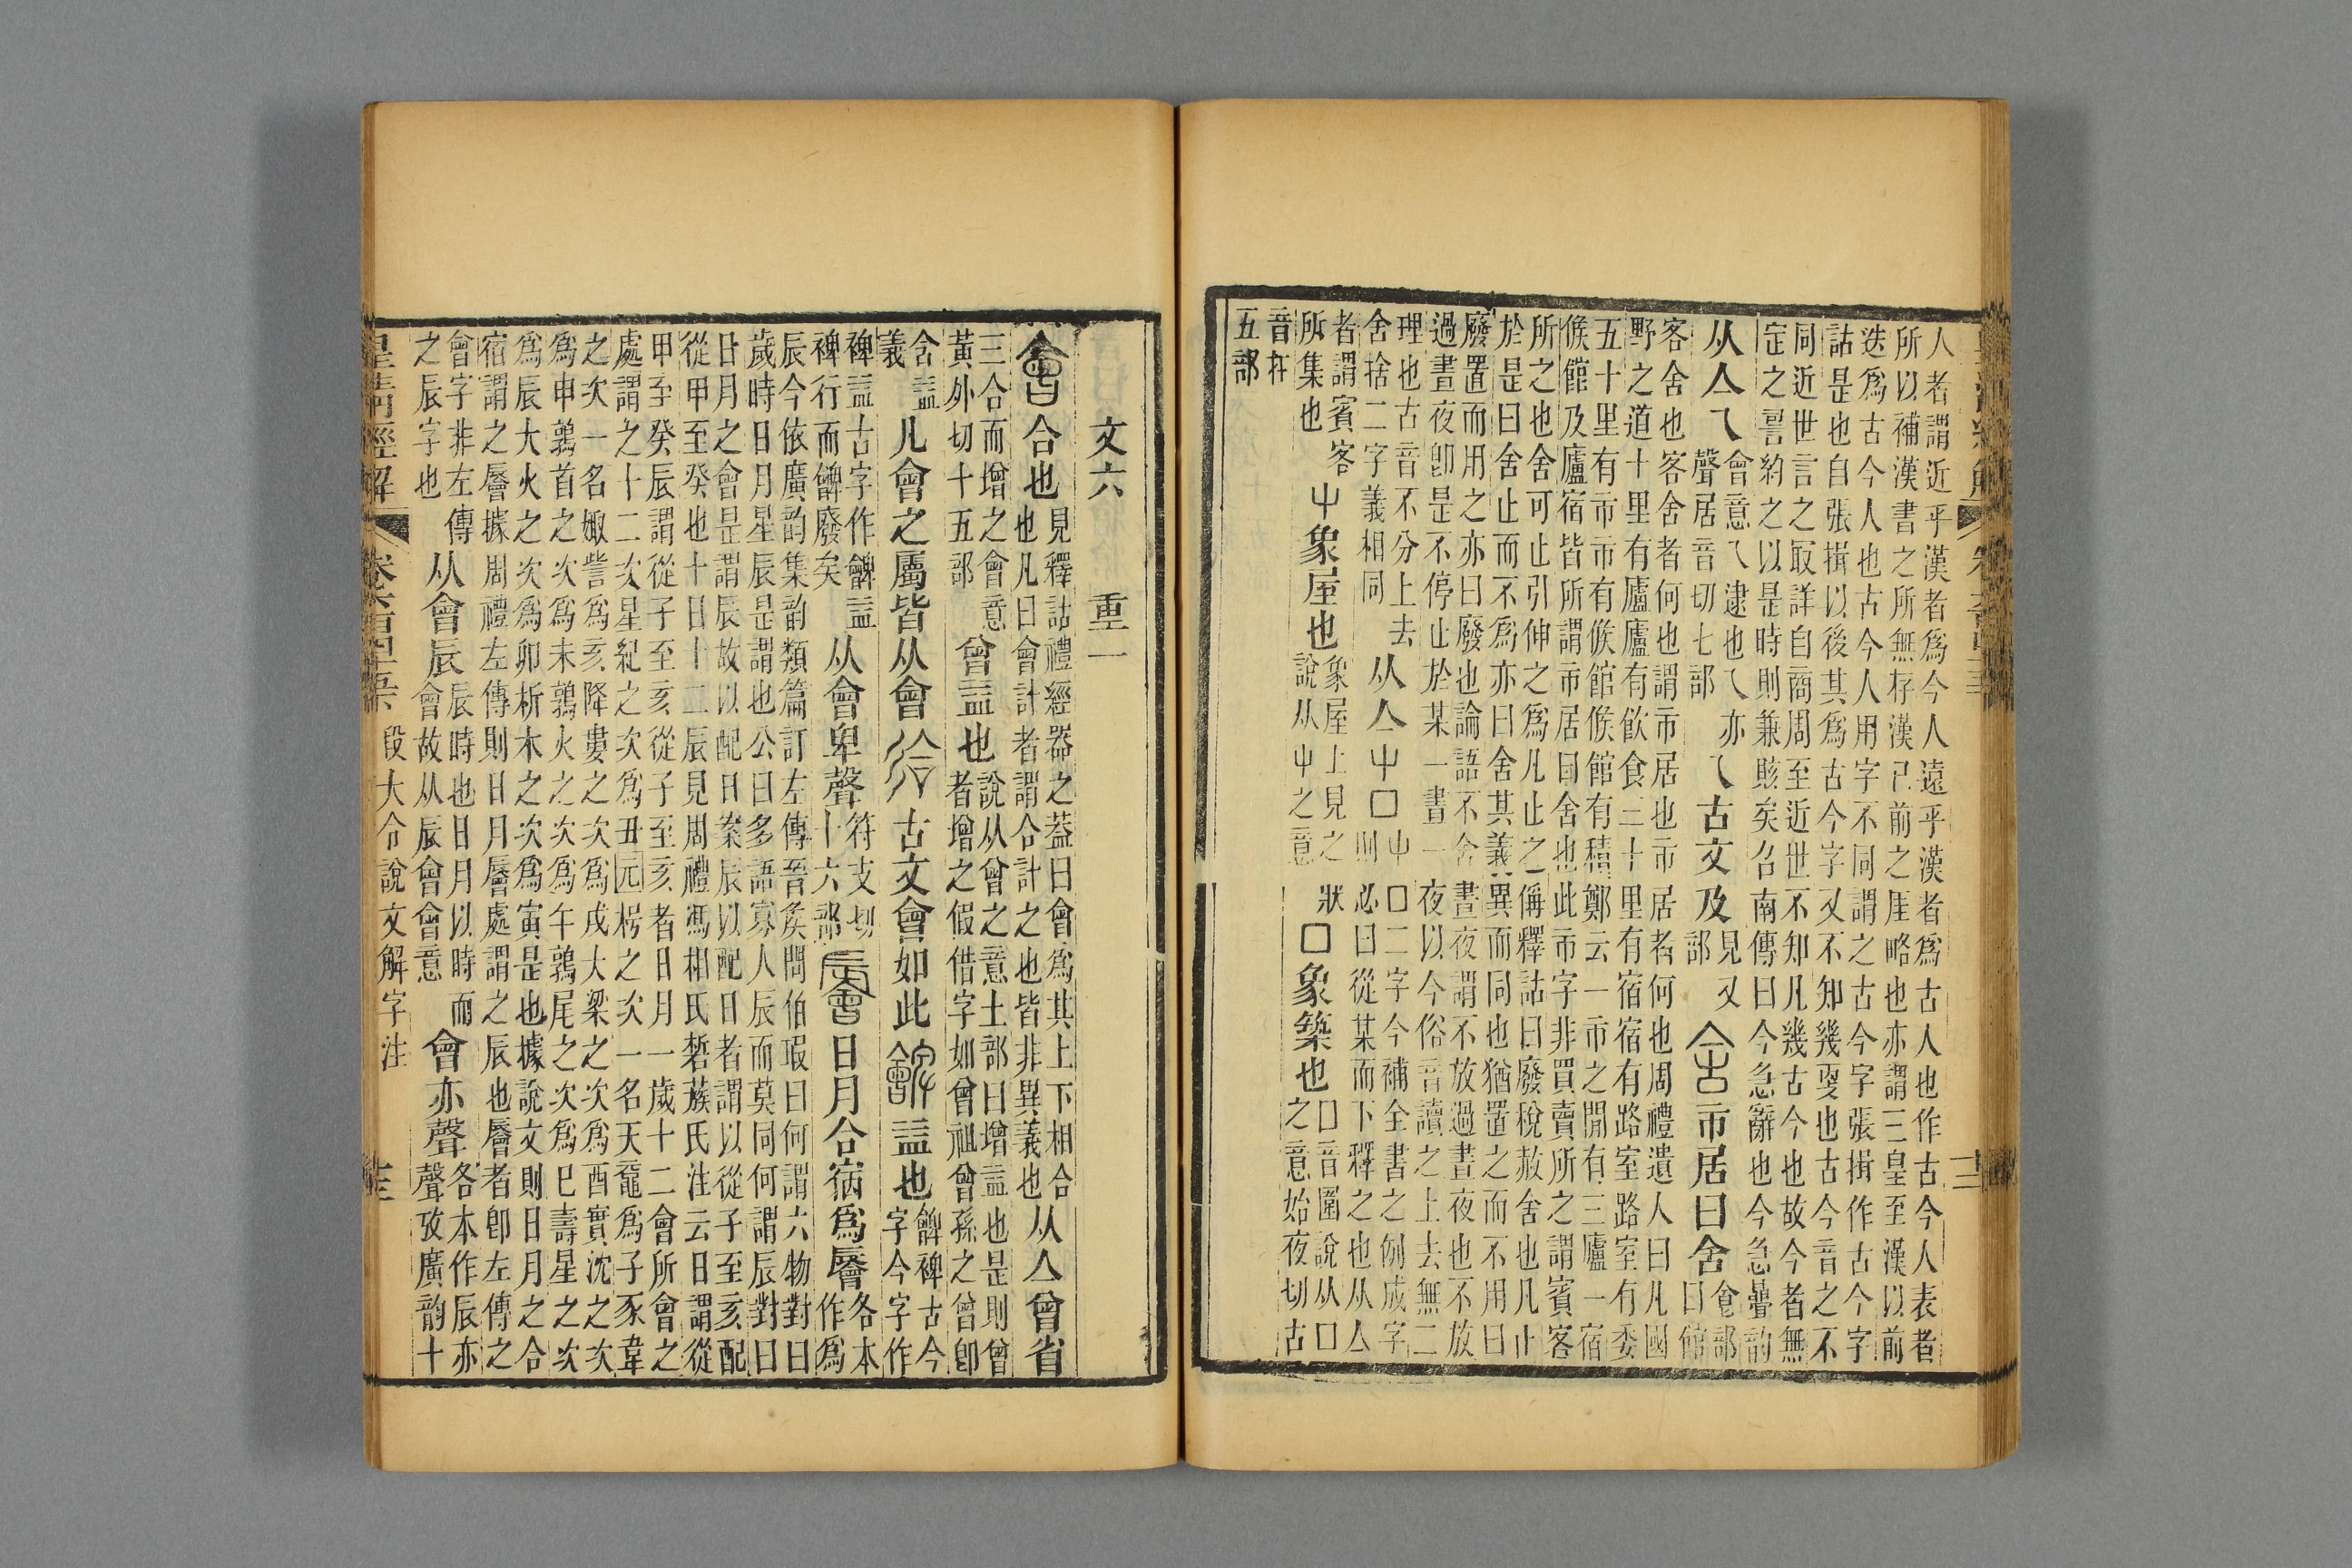 人者謂近乎漢者爲今人遠乎漢者爲古人也作古今人表者
所以補漢書之所無存漢已前之厓略也亦謂三皇至漢以前
迭爲古今人也古今人用字不同謂之古今字張揖作古今字
詁是也自張揖以後其爲古今字又不知幾更也古今音之不
同近世言之㝡詳自商周至近世不知凡幾古今也故今者無
定之䛐約之以是時則兼賅矣召南傳曰今急辭也今急曡韵
从亼乁會意乁逮也乁亦聲居音切七部乁古文及見又部舍市居曰舍食部曰館
客舍也客舍者何也謂市居也市居者何也周禮遺人曰凡國
野之道十里有廬廬有飲食三十里有宿宿有路室路室有委
五十里有市市有候館候館有積鄭云一市之閒有三廬一宿
候館及廬宿皆所謂市居曰舍也此市字非買賣所之謂賓客
所之也舍可止引伸之爲凡止之偁釋詁曰廢稅赦舍也凡止
於是曰舍止而不爲亦曰舍其義異而同也猶置之而不用曰
廢置而用之亦曰廢也論語不舍晝夜謂不放過晝夜也不放
過晝夜卽是不停止於某一晝一夜以今俗音讀之上去無二
理也古音不分上去舍捨二字義相同从亼屮囗屮囗二字今補全書之例成字則必曰從某而下釋之也从亼
者謂賓客所集也屮象屋也象屋上見之狀說从屮之意囗象築也囗音圍說从囗之意始夜切古
音在五部
文六 重一
會合也見釋詁禮經器之葢曰會爲其上下相合也凡曰會計者謂合計之也皆非異義也从亼曾省
三合而增之會意黃外切十五部曾益也說从曾之意土部曰增益也是則曾者增之假借字如曾祖曾孫之曾卽
含益義凡會之屬皆从會㣛古文會如此䪗益也䪗裨古今字今字作
裨益古字作䪗益裨行而䪗廢矣从會卑聲符支切十六部䢈日月合宿爲䢈各本作爲
辰今依廣韵集韵類篇訂左傳晉矦問伯瑕曰何謂六物對曰
歲時日月星辰是謂也公曰多語寡人辰而莫同何謂辰對曰
日月之會是謂辰故以配日案辰以配日者謂以從子至亥配
從甲至癸也十日十二辰見周禮馮相氏硩蔟氏注云日謂從
甲至癸辰謂從子至亥從子至亥者日月一歲十二會所會之
處謂之十二次星紀之次爲丑元枵之次一名天黿爲子豕韋
之次一名娵訾爲亥降婁之次爲戌大梁之次爲酉實沈之次
爲申鶉首之次爲未鶉火之次爲午鶉尾之次爲巳壽星之次
爲辰大火之次爲卯析木之次爲寅是也據說文則日月之合
宿謂之䢈據周禮左傳則日月䢈處謂之辰也䢈者卽左傳之
會字非左傳之辰字也从會辰辰時也日月以時而會故从辰會會意會亦聲各本作辰亦聲攷廣韵十
皇清經解 卷六百四十五 段大令說文解字注 十三